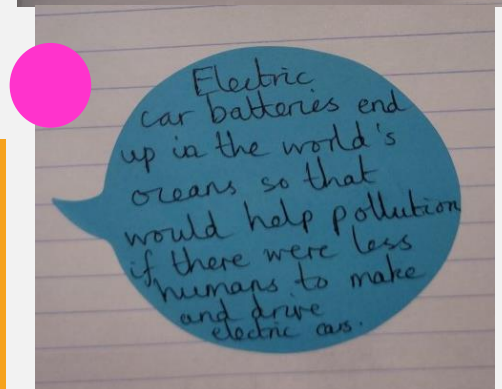 Electric
car batteries end
up in the world's
oceans so that
would help pollution
if there were less
humans to make
and drive
electric cars.